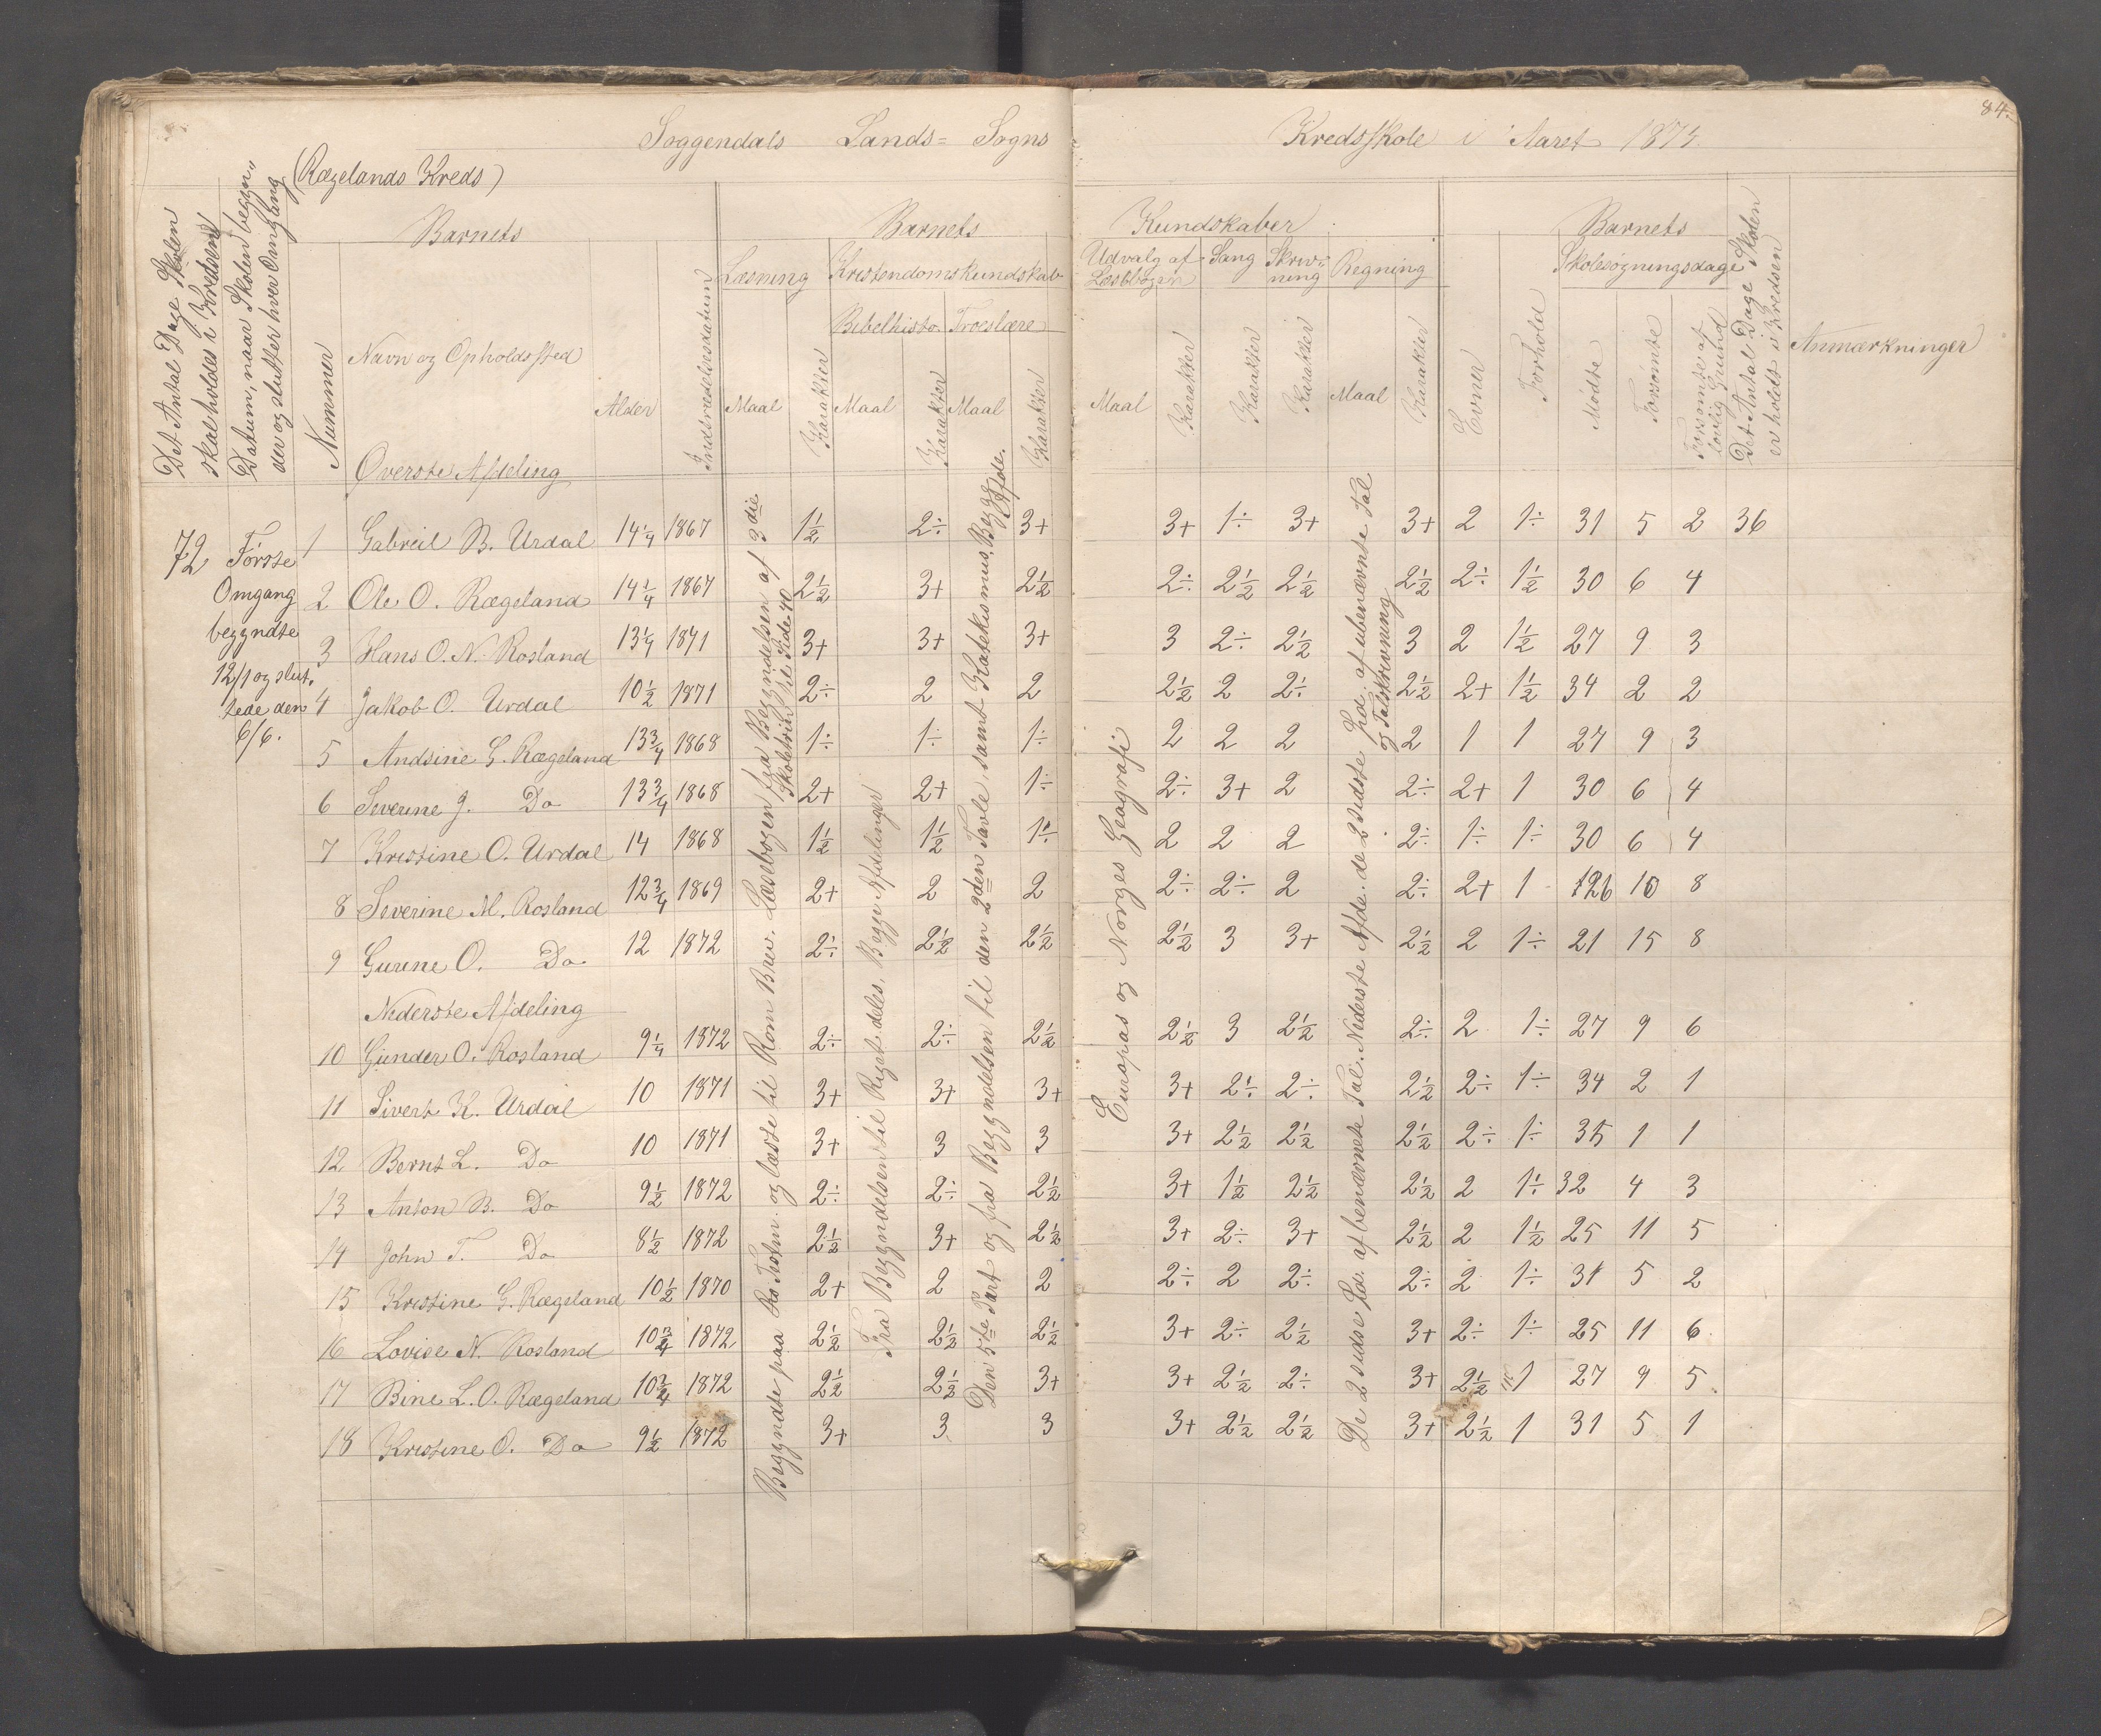 84.
Soggendals Lands= Sogns Kredsskole i Aaret 1875.
(Rægelands Kreds)
Det Antal Dage Skolen skal holdes i Kredsen
Datum, naar Skolen begyn„
der og slutter hver Omgang
Nummer
Barnets
Navn og Opholdssted
Alder
Indtrædelsesdatum
Barnets Kundskaber
Læsning
Kristendomskundskab
Bibelhisto. Troeslære
Maal Karakter Maal Karakter Maal Karakter
Udvalg af Læsebogen
Sang
Skriv=
ning
Regning
Maal Karakter Karakter Karakter Maal Karakter
Evner
Forhold
Barnets
Skolesøgningsdage
Mødte
Forsømte
Forsømte af lovlig Grund
Det Antal Dage Skolen er holdt i Kredsen
Anmærkninger
Øverste Afdeling
72
Første
Omgang
begyndte
12/1 og slut.
tede den
6/6.
1 Gabreil B. Urdal 14 1/4 1867 1 1/2 2÷ 3+ 3+ 1÷ 3+ 3+ 2 1÷ 31 5 2 36
2 Ole O. Rægeland 14 1/4 1867 2 1/2 3+ 2 1/2 2÷ 2 1/2 2 1/2 2 1/2 2÷ 1 1/2 30 6 4
3 Hans O. N. Rosland 13 1/4 1871 3+ 3+ 3+ 3 2÷ 2 1/2 3 2 1 1/2 27 9 3
4 Jakob O. Urdal 10 1/2 1871 2÷ 2 2 2 1/2 2 2÷ 2 1/2 2+ 1 1/2 34 2 2
5 Andsine G. Rægeland 13 3/4 1868 1÷ 1÷ 1÷ 2 2 2 2 1 1 27 9 3
6 Severine J. Do 13 3/4 1868 2+ 2+ 1÷ 2÷ 3+ 2 2÷ 2+ 1 30 6 4
7 Kristine O. Urdal 14 1868 1 1/2 1 1/2 1÷ 2 2 2 2÷ 1÷ 1÷ 30 6 4
8 Severine M. Rosland 12 3/4 1869 2+ 2 2 2÷ 2÷ 2 2÷ 2+ 1 26 10 8
9 Gurine O. Do. 12 1872 2÷ 2 1/2 2 1/2 2 1/2 3 3+ 2 1/2 2 1÷ 21 15 8
Nederste Afdeling
10 Gunder O. Rosland 9 1/4 1872 2÷ 2÷ 2 1/2 2 1/2 3 2 1/2 2÷ 2 1÷ 27 9 6
11 Sivert K. Urdal 10 1871 3+ 3+ 3+ 3+ 2÷ 2÷ 2 1/2 2÷ 1÷ 34 2 1
12 Bernt L. Do 10 1871 3+ 3 3 3+ 2 1/2 2 1/2 2 1/2 2÷ 1÷ 35 1 1
13 Anton B. Do 9 1/2 1872 2÷ 2÷ 2 1/2 3+ 1 1/2 2 1/2 2 1/2 2 1÷ 32 4 3
14 John T. Do 8 1/2 1872 2 1/2 3+ 2 1/2 3+ 2÷ 3+ 2 1/2 2 1 1/2 25 11 5
15 Kristine G. Rægeland 10 1/2 1870 2+ 2 2 2÷ 2 2÷ 2÷ 2 1÷ 31 5 2
16 Lovise N. Rosland 10 3/4 1872 2 1/2 2 1/2 2 1/2 3+ 2÷ 2 1/2 3+ 2÷ 1÷ 25 11 6
17 Bine L. O. Rægeland 10 3/4 1872 2 1/2 2 1/2 3+ 3+ 2 1/2 2÷ 3+ 2 1/2 1 27 9 5
18 Kristine O. Do 9 1/2 1872 3+ 3 3 3+ 2 1/2 2 1/2 3+ 2 1/2 1 31 5 1
Begyndte paa og læste til Rom Brev. Læsebogen fra Begyndelsen af 3die
Skoletrin til Side 40
Fra Begyndelsen til Riget deles, Begge Afdelinger
Den 5te Part og fra Begyndelsen til den 2den Tavle, samt Katekismus, Begge Afde.
Europas og Norges Geografi
De 2 sidse Ld. af benævnte Tal. Nederste Afde. de 2 sidste Ld. af ubenævnte Tal
og Talskrivning